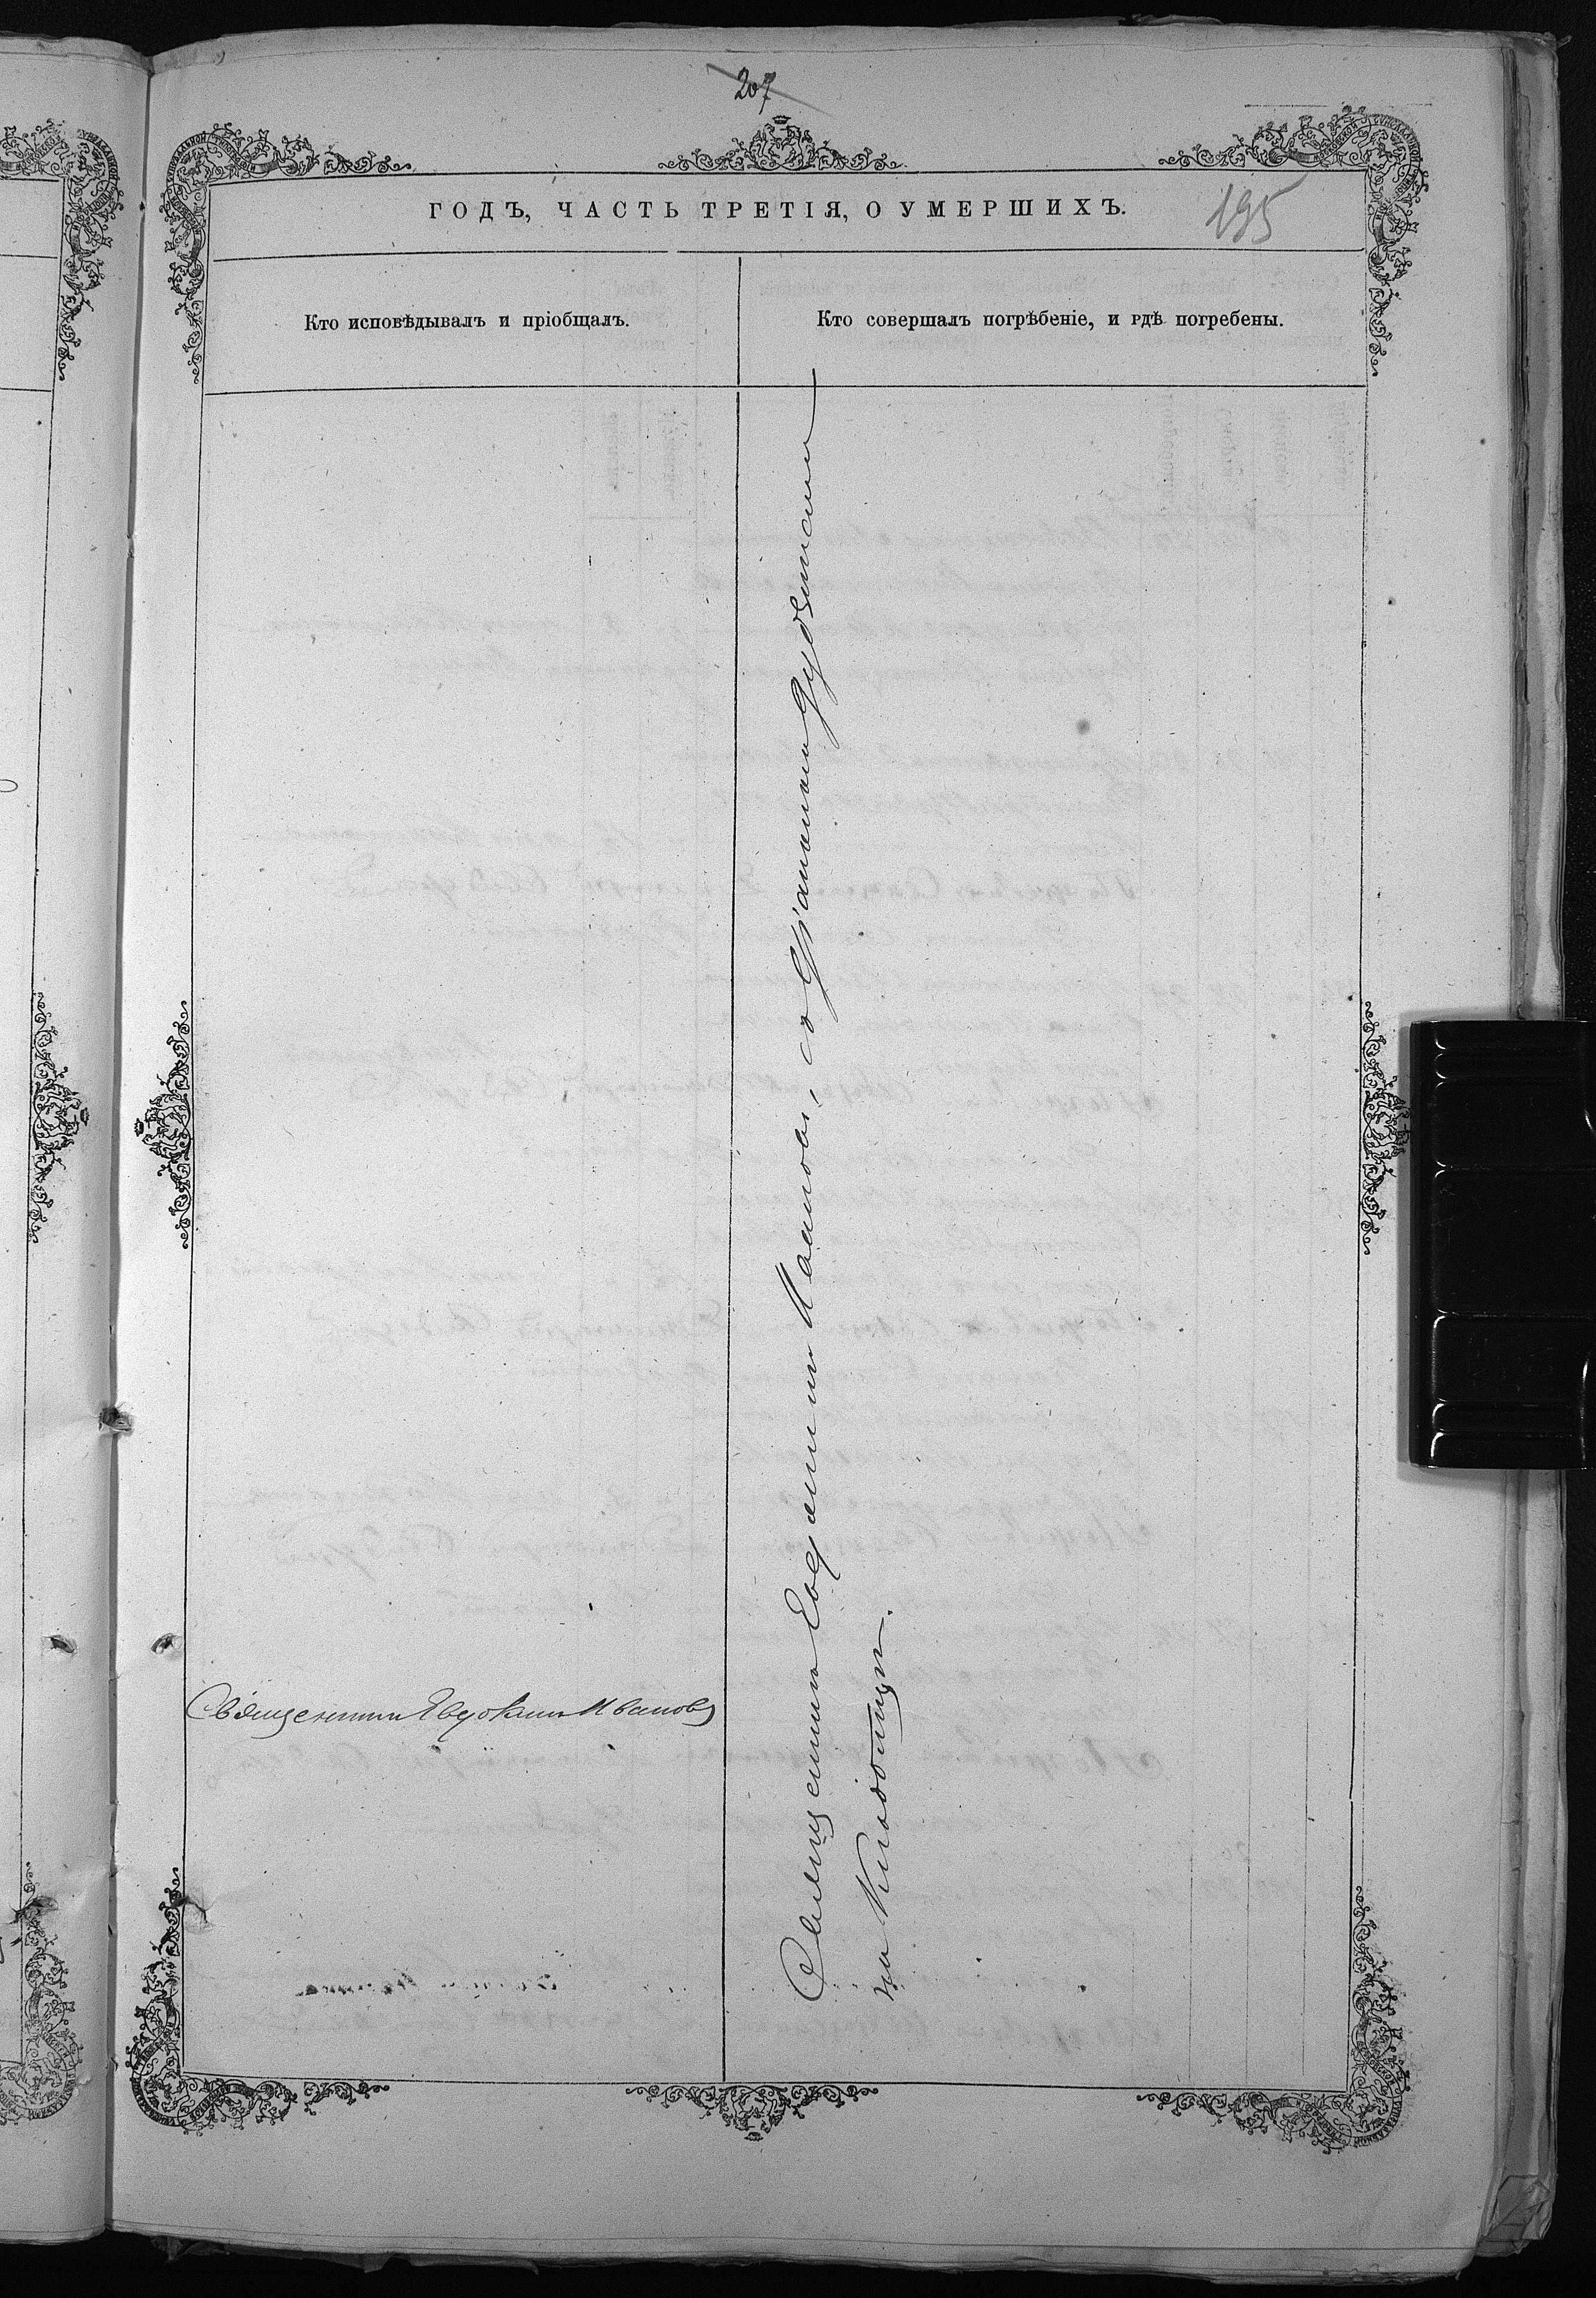 207
195
ГОДЪ, ЧАСТЬ ТРЕТІЯ, О УМЕРШИХЪ.
Кто исповѣдывалъ и пріобщалъ.
Кто совершалъ погрѣбеніе, и гдѣ погребены.
Священникъ Евдокимъ Ивановъ
Священникъ Ивановъ, съ
на Кладбищѣ.